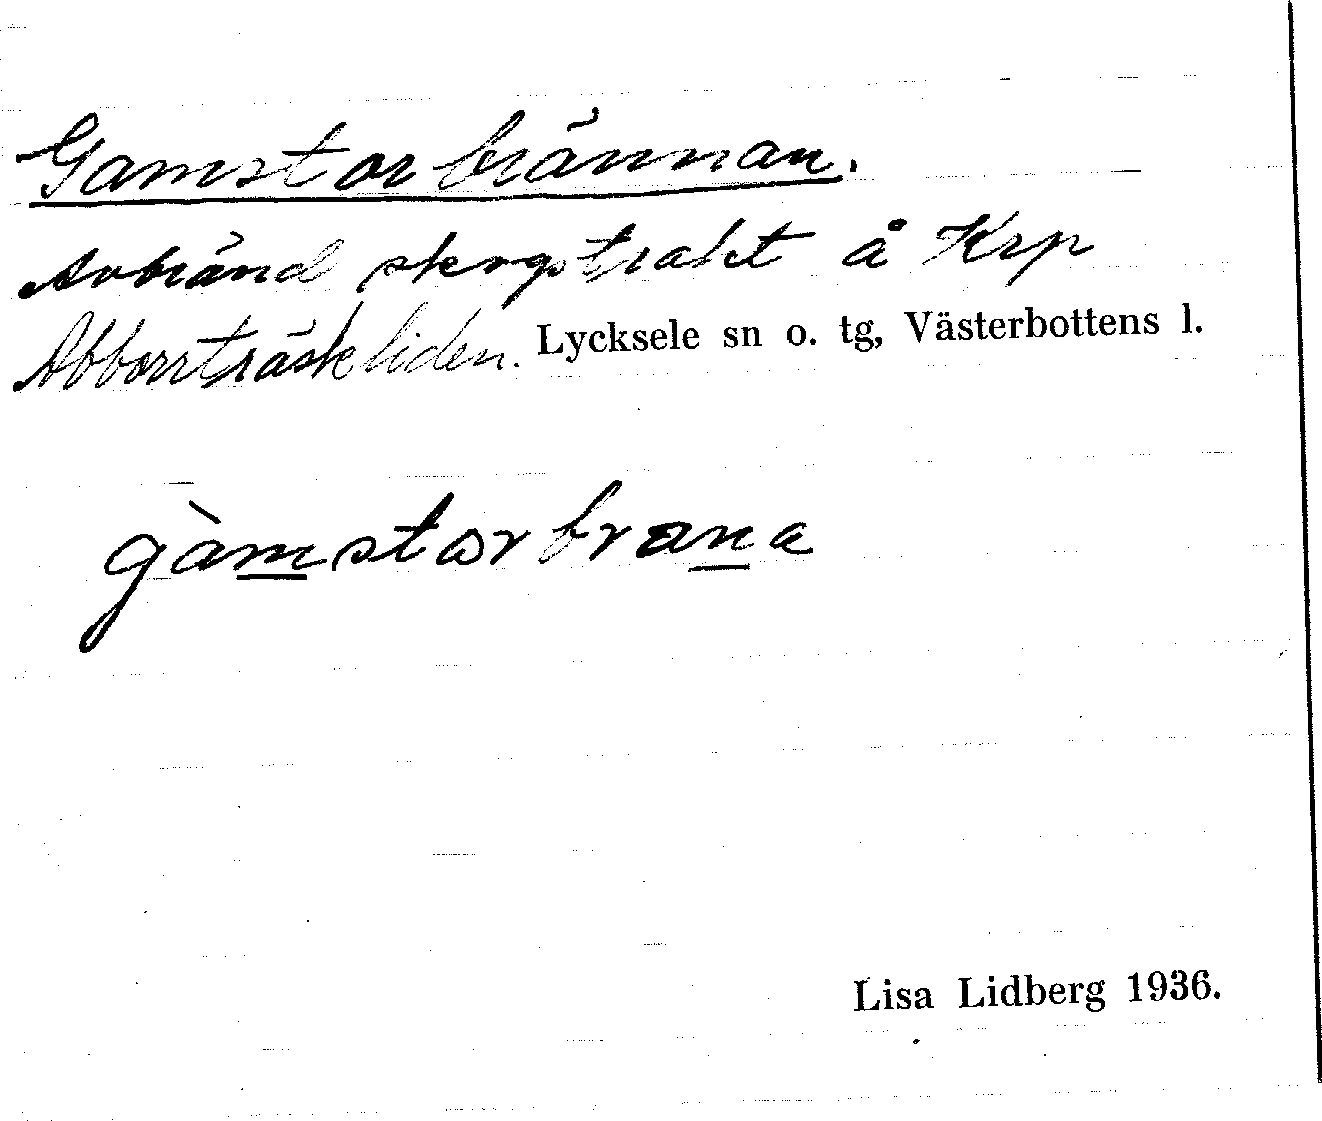 Gamstorbrännan.
Avbränd skogstrakt å Krp
Abborrträskliden. Lycksele sn o. tg, Västerbottens l.
gàmstorbrana
Lisa Lidberg 1936.